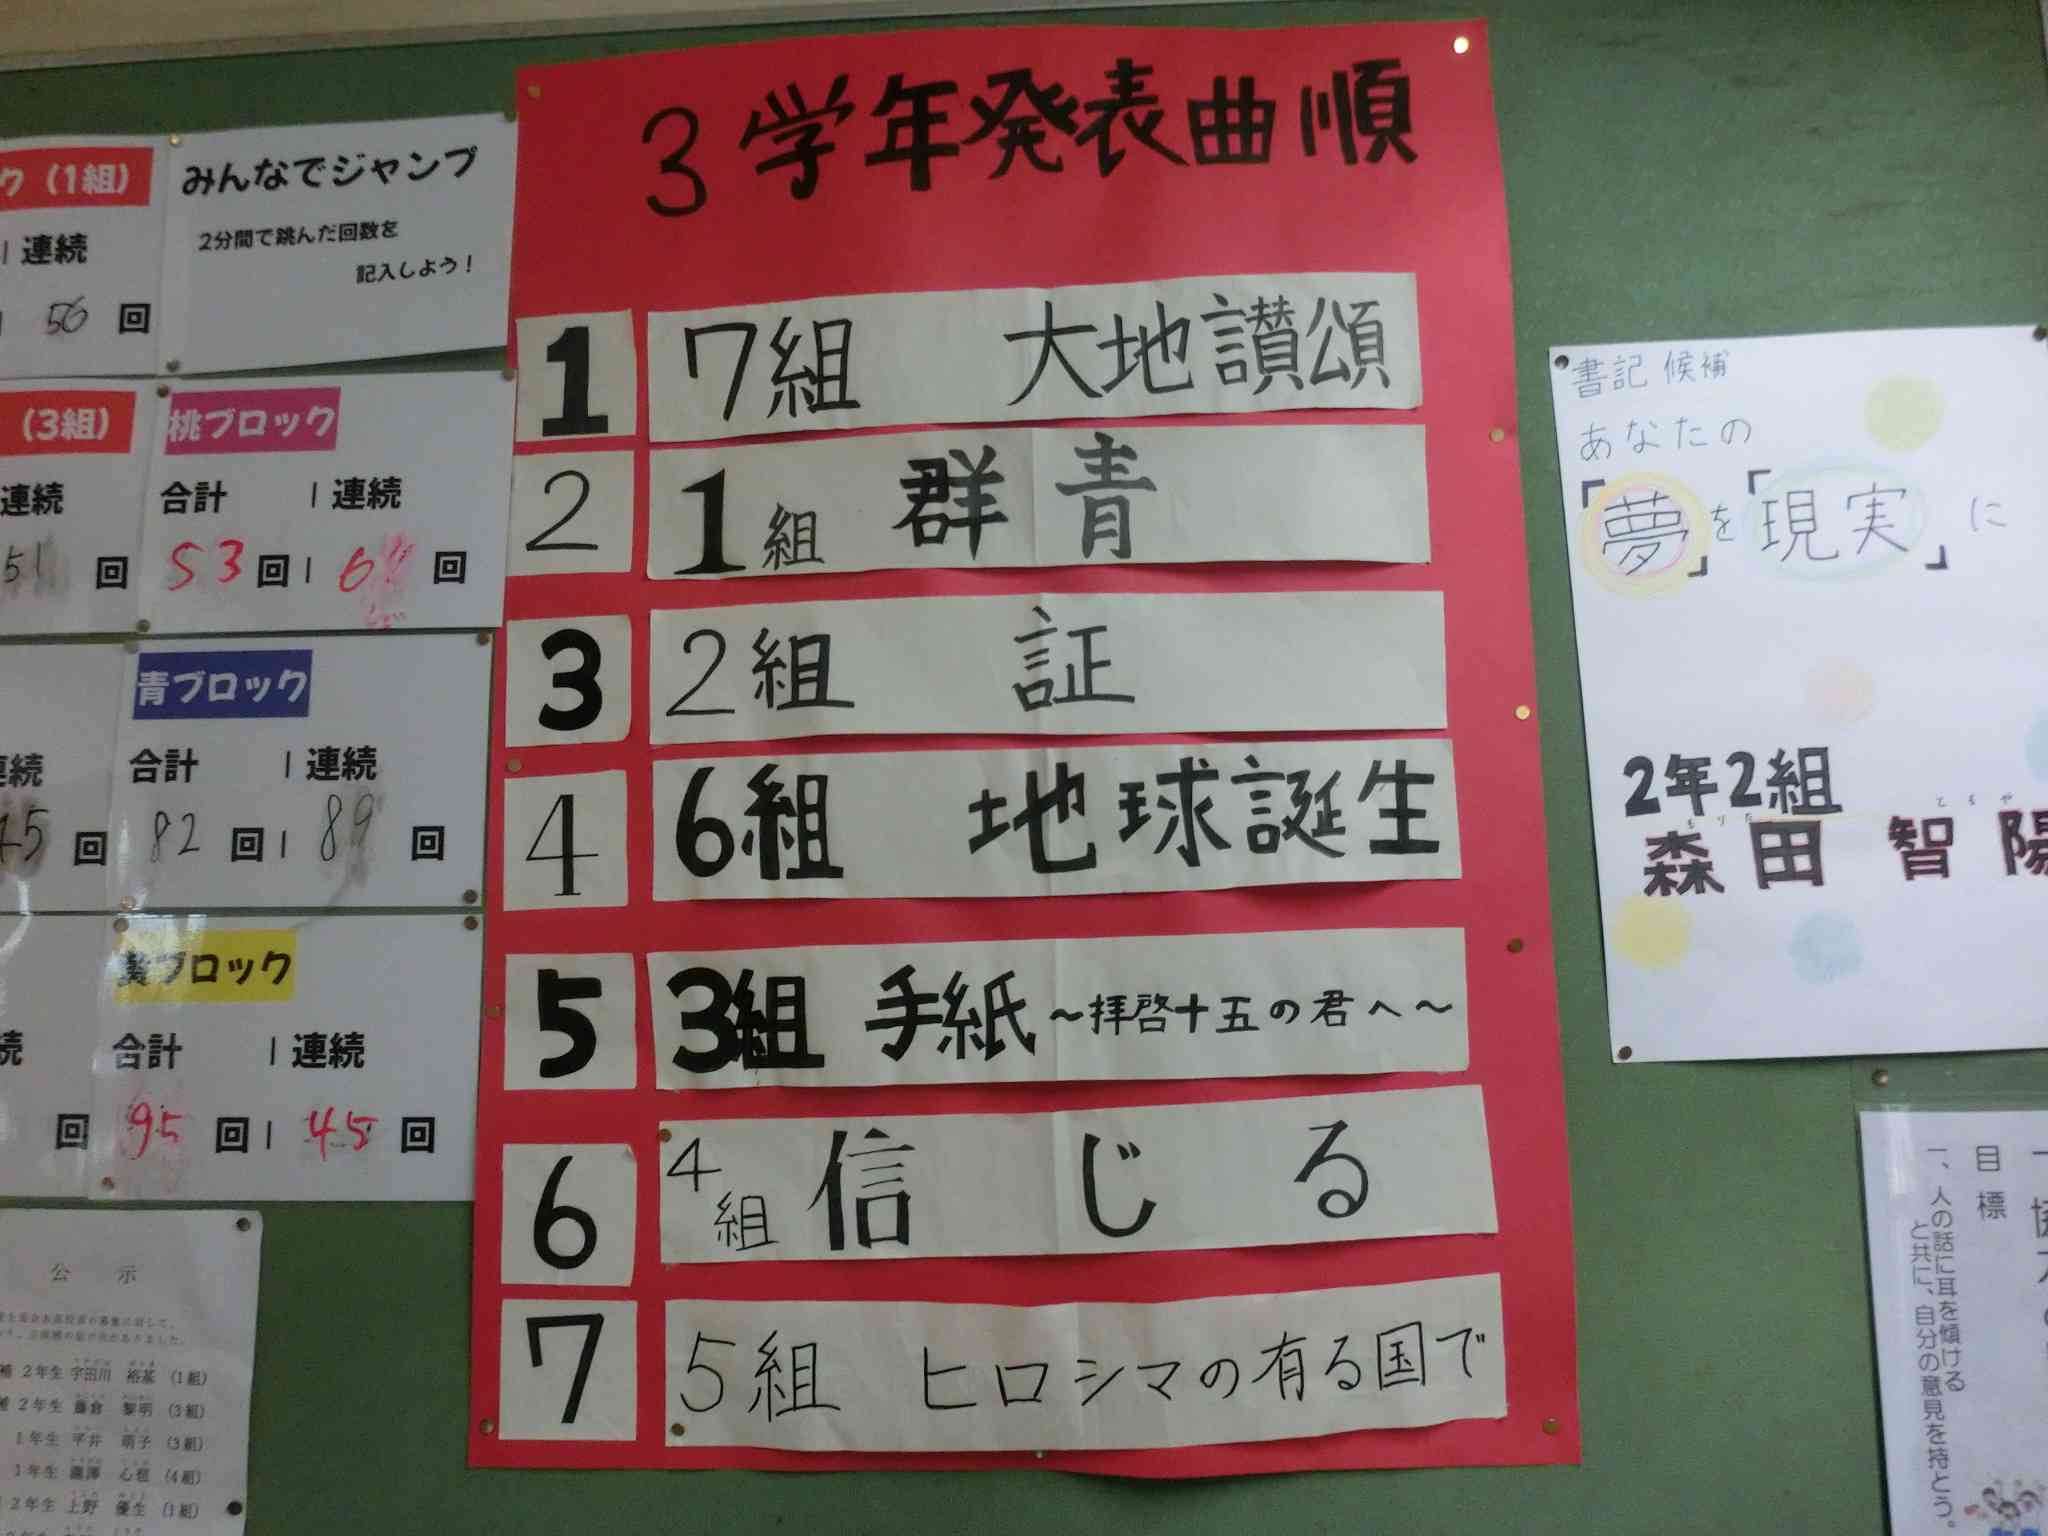 3学年発表曲順
1 7組 大地讃頌
2 1組 群青
3 2組 証
4 6組 地球誕生
5 3組 手紙～拝啓十五の君へ～
6 4組 信じる
7 5組 ヒロシマの有る国で
ク(1組)
連続
56 回
みんなでジャンプ
2分間で跳んだ回数を
記入しよう！
(3組)
連続
51 回
桃ブロック
合計 連続
53回 回
連続
45 回
青ブロック
合計 連続
82回 89回
続
回
黄ブロック
合計 連続
95回 45回
公示
2年生 宇田川 裕基 (1組)
2年生 藤倉 黎明 (3組)
1年生 平井 萌子 (3組)
1年生 瀧澤 心 (4組)
2年生 上野 優生 (1組)
書記候補
あなたの
「夢」を「現実」に
2年2組
もりた ともや
森田 智陽
目標
一、人の話に耳を傾ける
と共に、自分の意見を持とう。